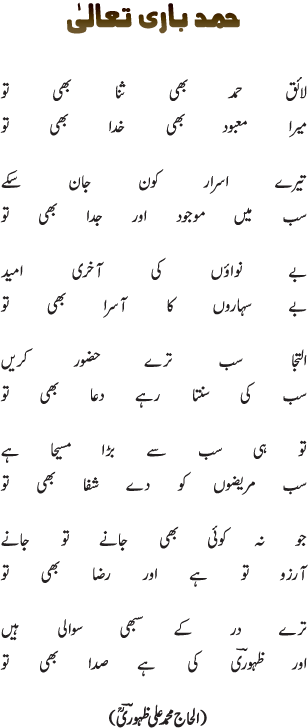 حمد باری تعالیٰ
لائق حمد بھی ثنا بھی تو
میرا معبود بھی خدا بھی تو
تیرے اسرار کون جان سکے
سب میں موجود اور جدا بھی تو
بے نواؤں کی آخری امید
بے سہاروں کا آسرا بھی تو
التجا سب ترے حضور کریں
سب کی سنتا رہے دعا بھی تو
تو ہی سب سے بڑا مسیحا ہے
سب مریضوں کو دے شفا بھی تو
جو نہ کوئی بھی جانے تو جانے
آرزو تو ہے اور رضا بھی تو
ترے در کے سبھی سوالی ہیں
اور ظہوریؔ کی ہے صدا بھی تو
(الحاج محمد علی ظہوریؔؒ)